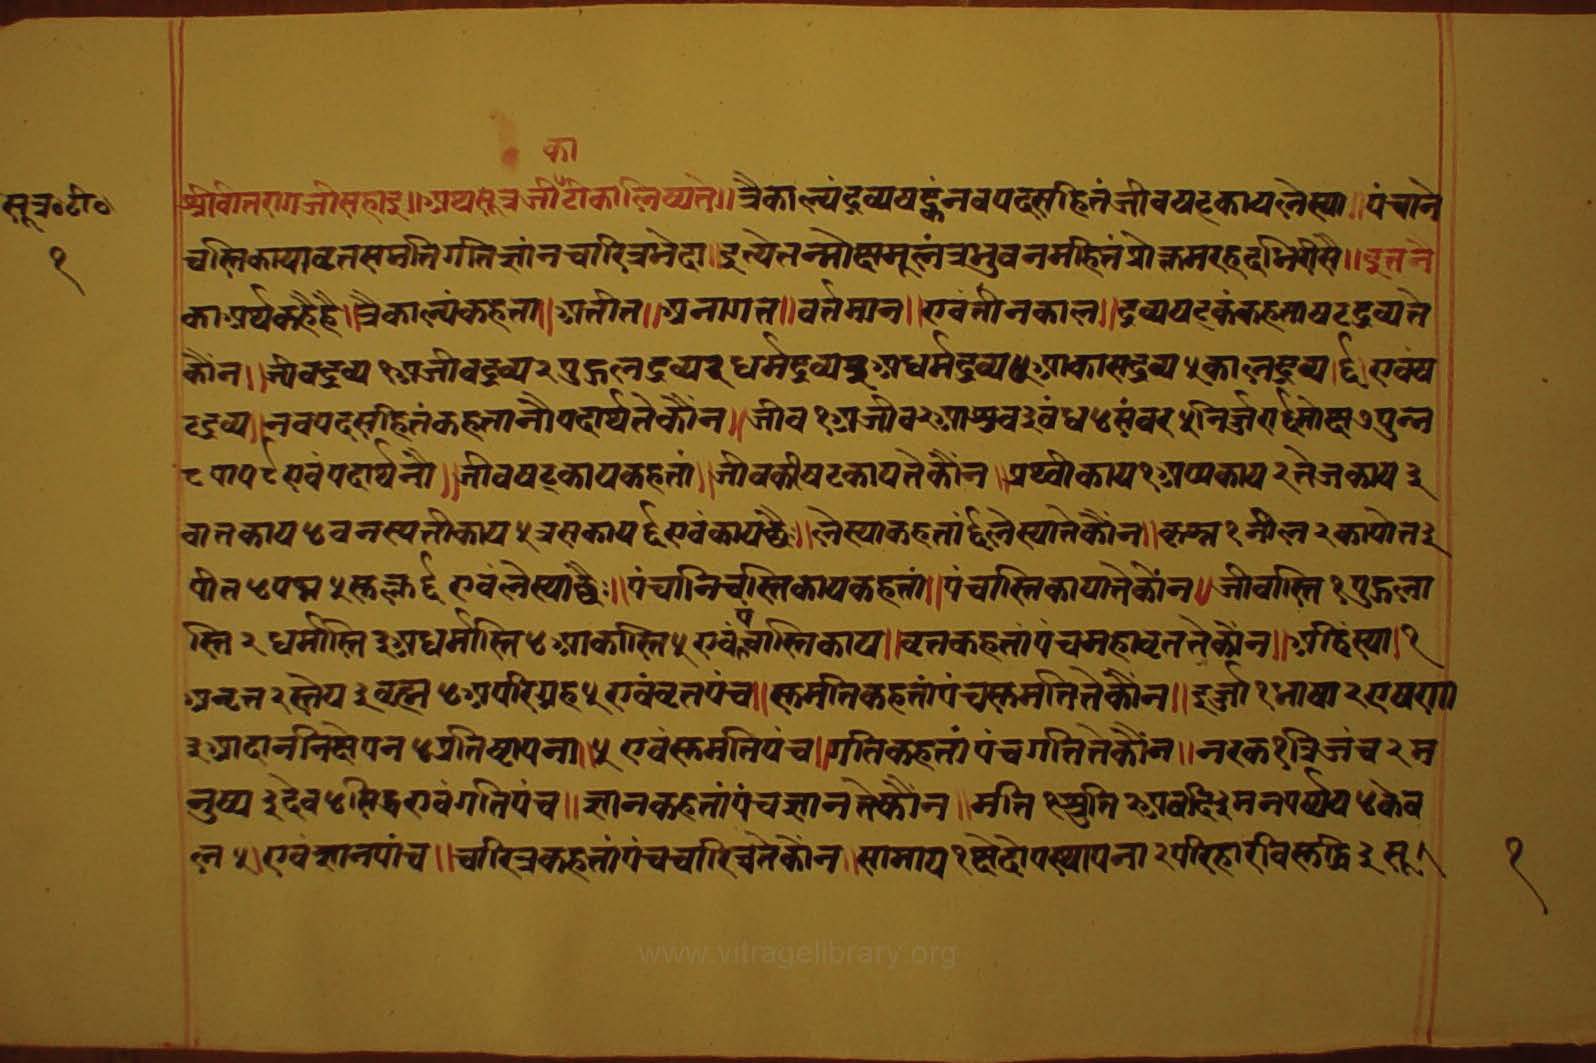 का
सूत्र॰टी॰
१
श्रीवीतरागजीसहाइ॥अथसूत्रजीटीकालिष्यते॥त्रैकाल्यंद्रव्यषट्कंनवपदसहितंजीवषटकायलेस्या॥पंचाने
चस्तिकायाव्रतसमतिगतिज्ञांनचारित्रभेदा॥इत्येतन्मोक्षमूलंत्रभुवनमहितंप्रोक्तमरहदभिरीसै॥इतनै
काअर्थकहैहै॥त्रैकाल्यंकहता॥अतीत॥अनागत॥वर्तमान॥एवंतीनकाल॥द्रव्यषट्कंकहताषटद्रव्यते
कौंन॥जीवद्रव्य१अजीवद्रव्य२पुद्गलद्रव्य३धर्मद्रव्य३अधर्मद्रव्य४आकासद्रव्य५कालद्रव्य।६।एवंष
टद्रव्य॥नवपदसहितंकहतानौपदार्थतेकौंन॥जीव१अजीव२आश्रव३बंध४संवर५निर्ज्जरा६मोक्ष७पुन्न
८पाप९एवंपदार्थनौ॥जीवषट्कायकहतां॥जीवकीषटकायतेकौंन॥प्रथ्वीकाय१अप्पकाय२तेजकाय३
वातकाय४वनस्पतीकाय५त्रसकाय६एवंकायछैः॥लेस्याकहतां६लेस्यातेकौंन॥कृस्न१नील२कापोत३
पीत४पद्म५सुक्ल६एवंलेस्याछैः॥पंचानिचस्तिकायकहतां॥पंचास्तिकायातेकौंन॥जीवास्ति१पुद्गला
स्ति२धर्मास्ति३अधर्मास्ति४आकास्ति५एवंपंचास्तिकाय॥व्रतकहतांपंचमहाव्रततेकौंन॥अहिंस्या।१
अनृत२स्तेय३ब्रह्म४अपरिग्रह५एवंव्रतपंच॥सुमतिकहतांपंचसुमतितेकौंन॥इर्ज्जा१भाषा२एषणा
३आदाननिक्षेपन४प्रतिष्टापना॥५एवंसुमतिपंच॥गतिकहतांपंचगतितेकौंन॥नरक१त्रिजंच२म
नुष्य३देव४सिद्ध५एवंगतिपंच॥ज्ञानकहतांपंचज्ञानतेकौंन॥मति१श्रुति२अवधि३मनपर्य्यय४केव
ल५।एवंज्ञानपांच॥चारित्रकहतांपंचचारित्रतेकौंन॥सामाय१छेदोपस्थापना२परिहारविसुद्धि३सू
१
www.vitragelibrary.org